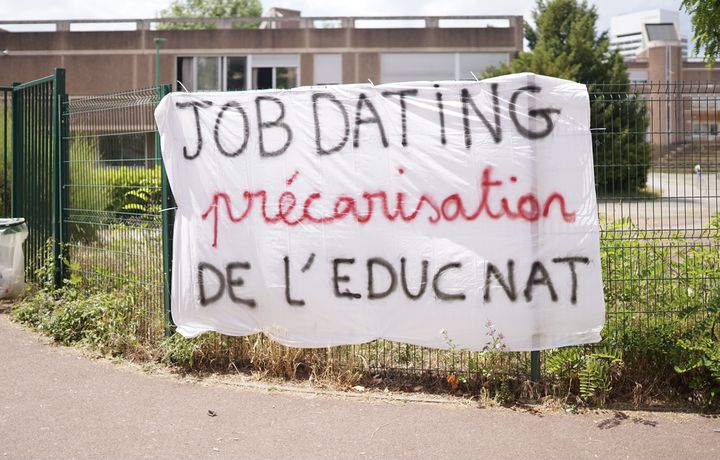 JOB DATING
précarisation
DE L'EDUC NAT